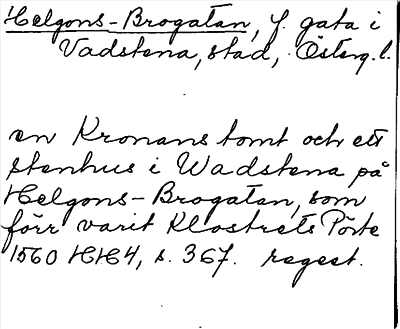 Helgons-Brogatan, f. gata i
Vadstena, stad, Österg. l.
en Kronans tomt och ett
stenhus i Wadstena på
Helgons-Brogatan, som
förr varit Klostrets Pörte
1560 HH4, s. 367. regest.